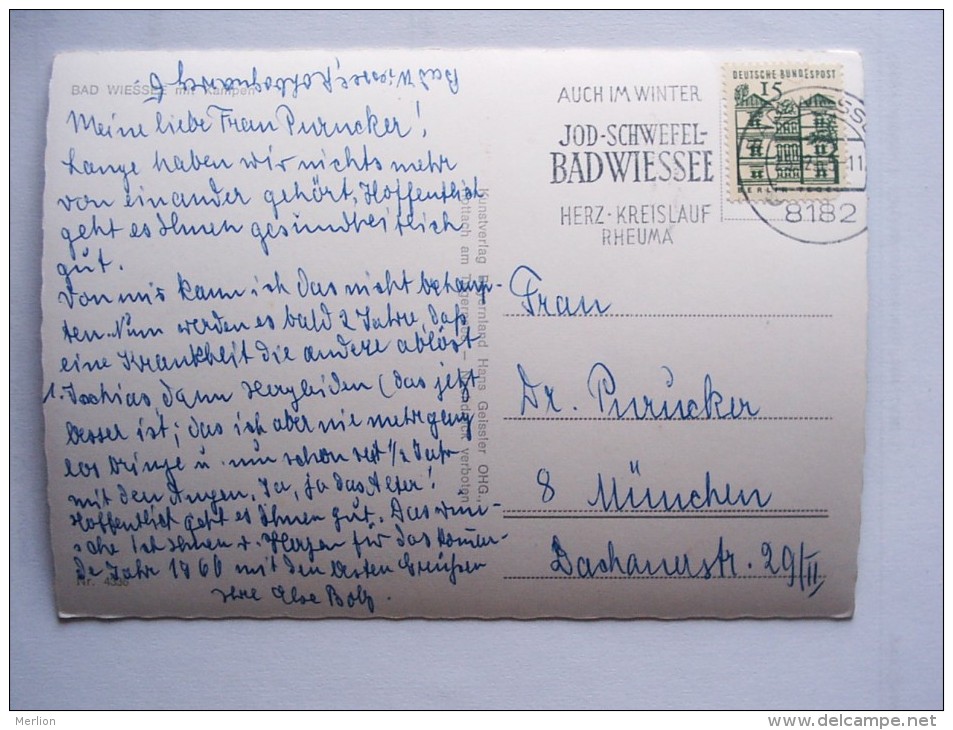 BAD WIESSEE mit Kampen
Bad Wiessee,
Meine liebe Frau Purucker!
Lange haben wir nichts mehr
von einander gehört. Hoffentlich
geht es Ihnen gesundheitlich
gut.
Von mir kann ich das nicht behaup-
ten. Nun werden es bald 2 Jahre, daß
eine Krankheit die andere ablöst
1. Ischias dann Herzleiden (das jetzt
besser ist; das ich aber nie mehr ganz
los bringe u. nun schon seit 1/2 Jahr
mit den Augen. Ja, ja das Alter!
Hoffentlich geht es Ihnen gut. Das wün-
sche ich Ihnen v. Herzen für das kommen-
de Jahr 1966 mit den besten Grüßen
Ihre Else Bolz
Nr. 4336
Kunstverlag Bayernland Hans Geissler OHG.,
Rottach am Tegernsee — Nachdruck verboten
AUCH IM WINTER
JOD-SCHWEFEL-
BAD WIESSEE
HERZ·KREISLAUF
RHEUMA
DEUTSCHE BUNDESPOST
15
BERLIN-TEGEL
8182
Frau
Dr. Purucker
8 München
Dachauerstr. 29/II
Merlion
www.delcampe.net